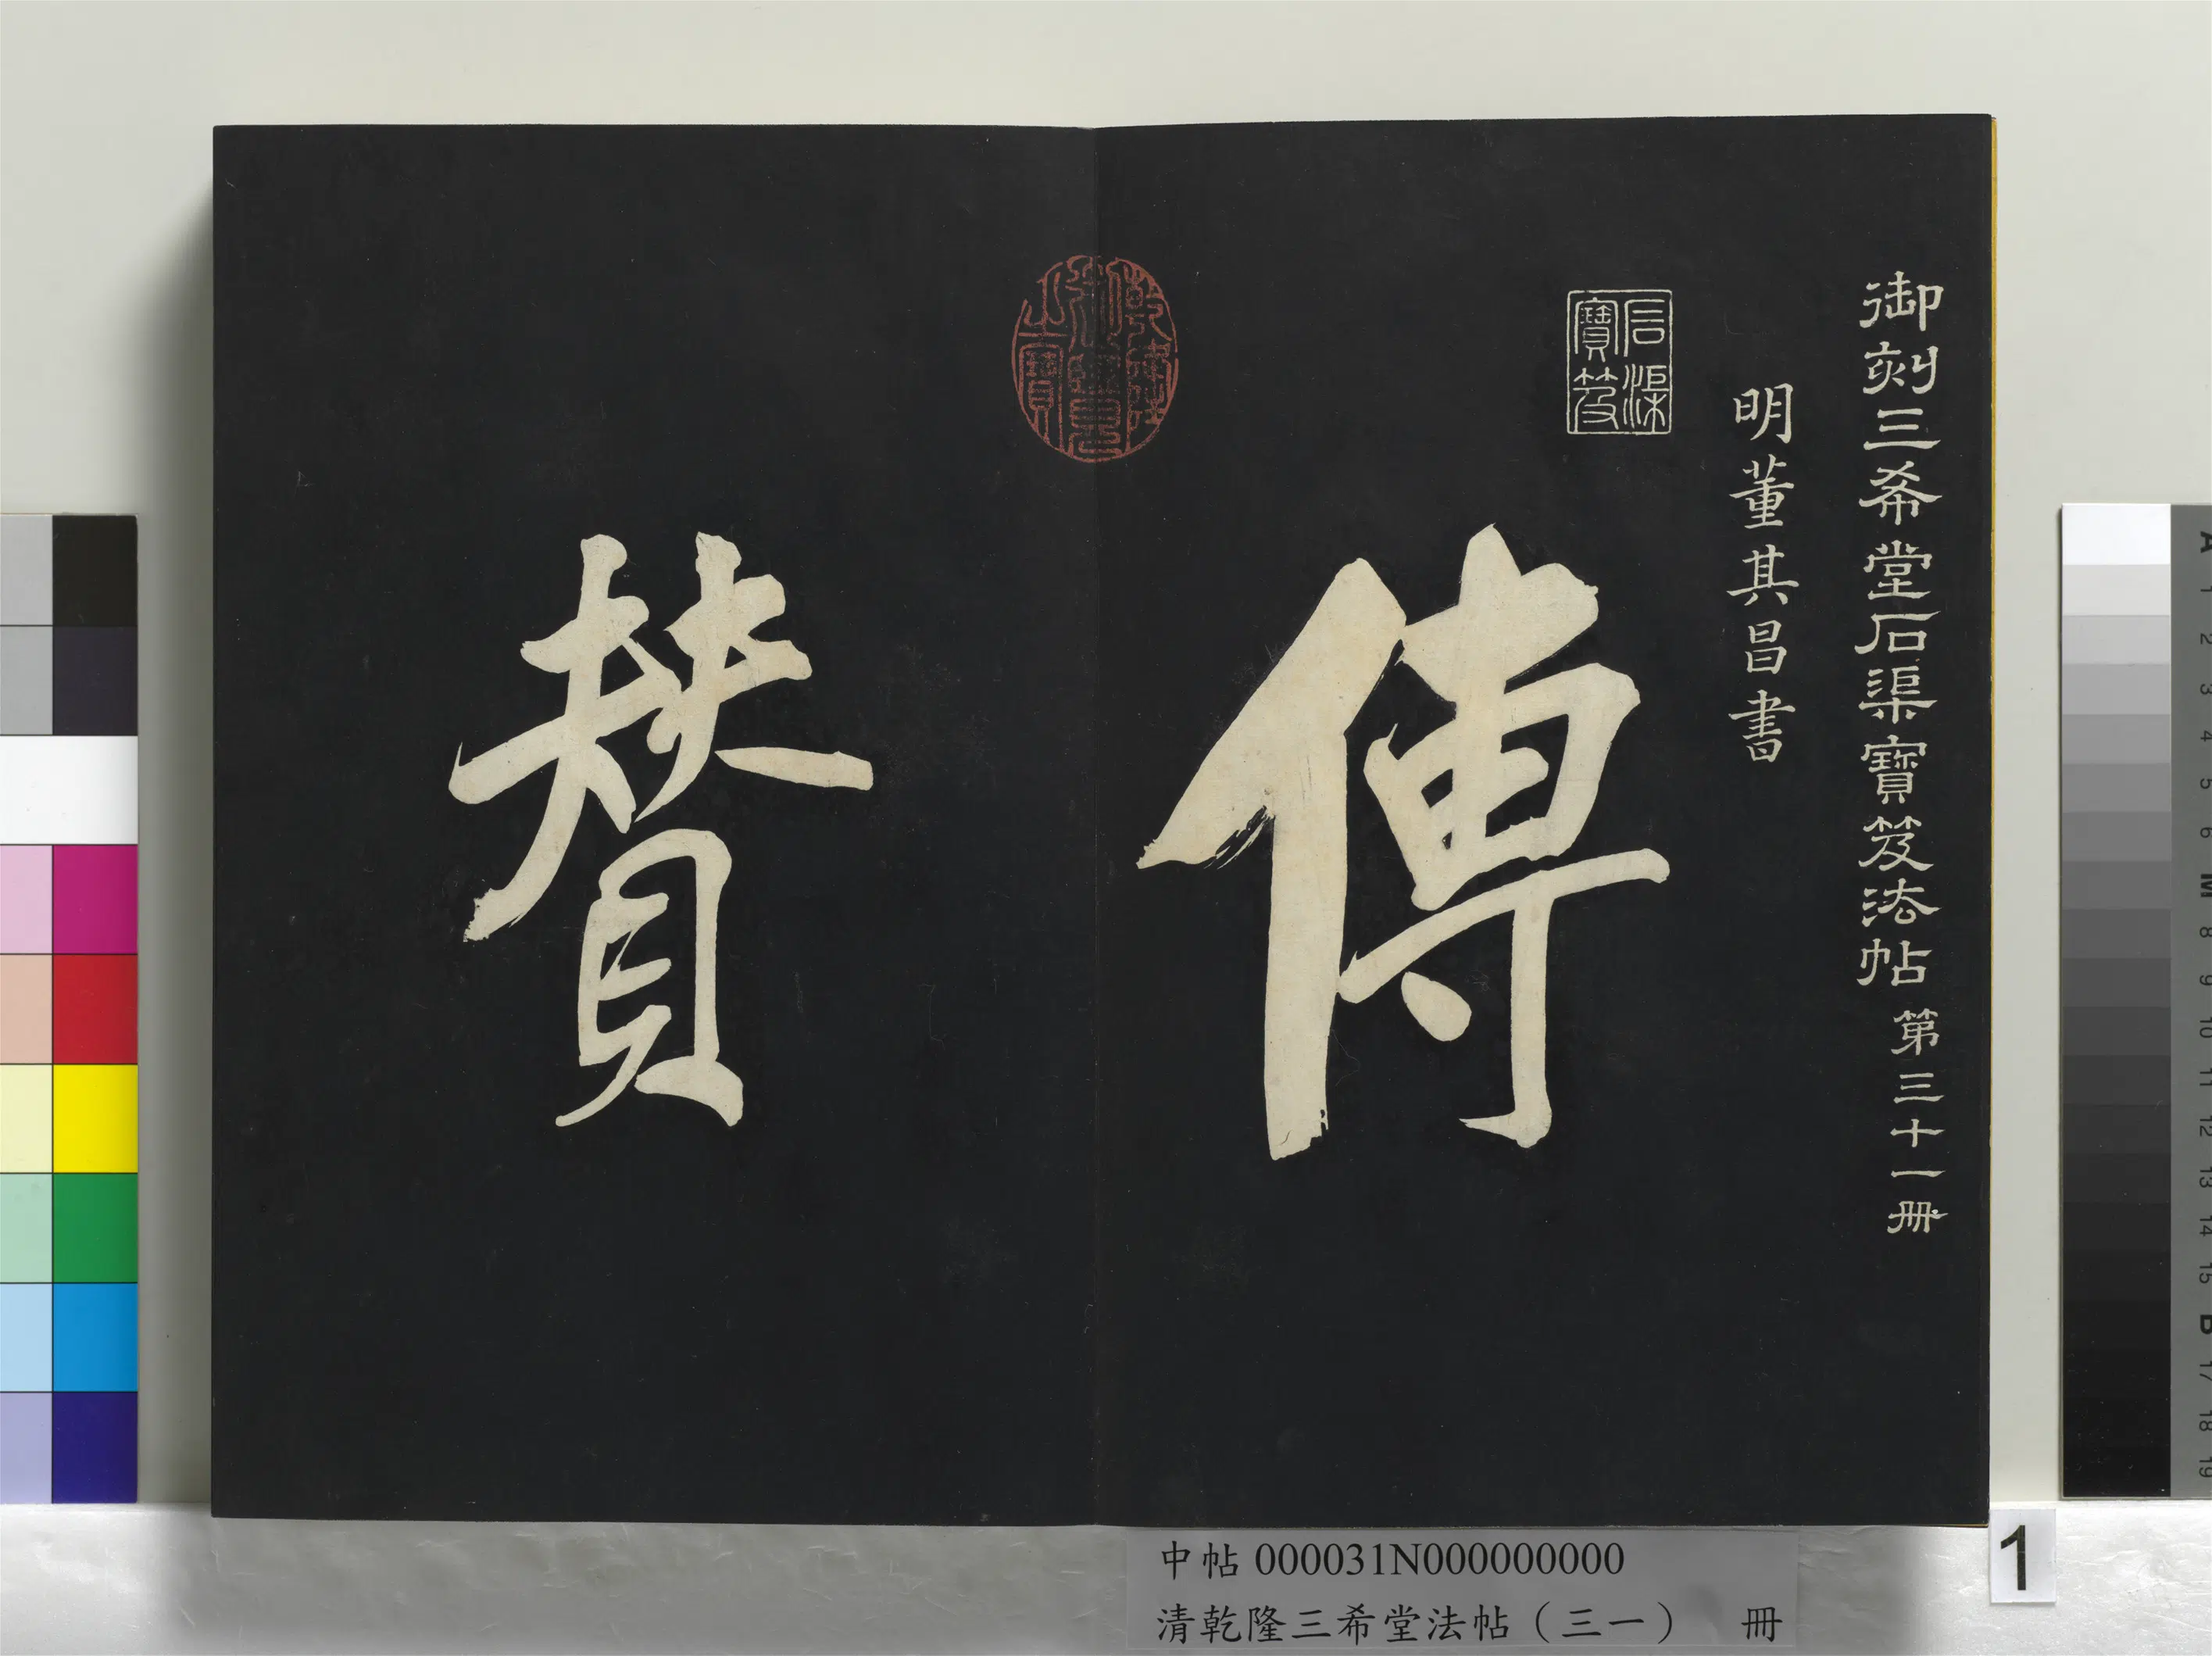 御刻三希堂石渠寶笈法帖 第三十一冊
明董其昌書
石渠寶笈
傳
乾隆御覽之寶
贊
中帖 000031N000000000
清乾隆三希堂法帖（三一） 冊
1
A 1 2 3 4 5 6 M 8 9 10 11 12 13 14 15 B 17 18 19